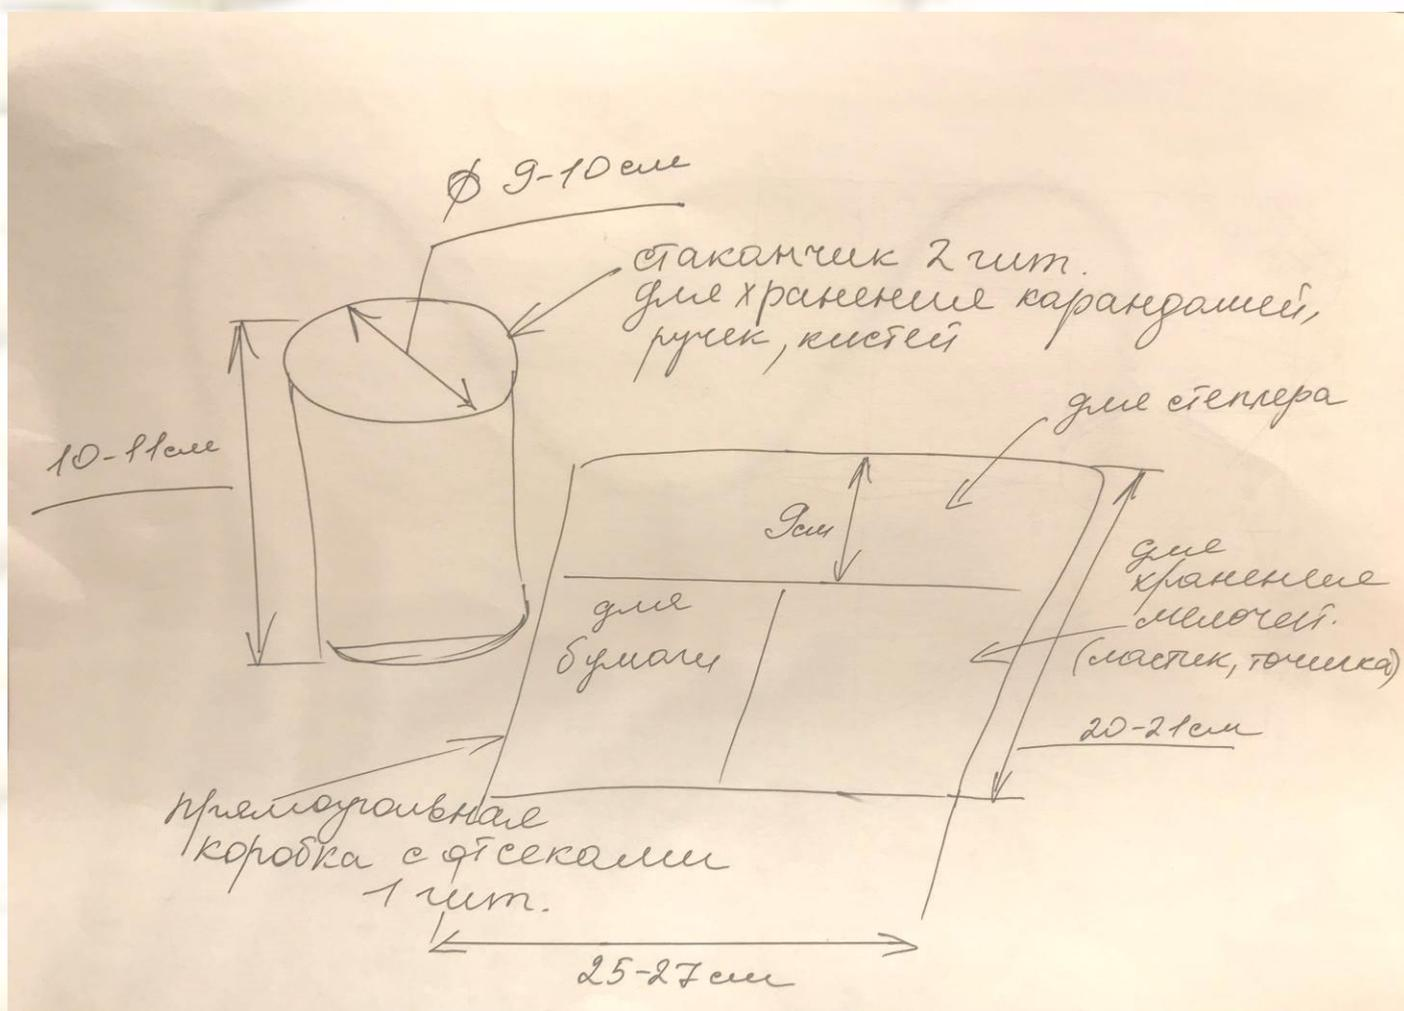 ⌀ 9-10см
стаканчик 2 шт.
для хранение карандашей,
ручек, кистей
10-11см
для степлера
9см
для
бумаги
для
хранение
мелочей.
(ластик, точилка)
20-21см
прямоугольная
коробка с отсеками
1 шт.
25-27см